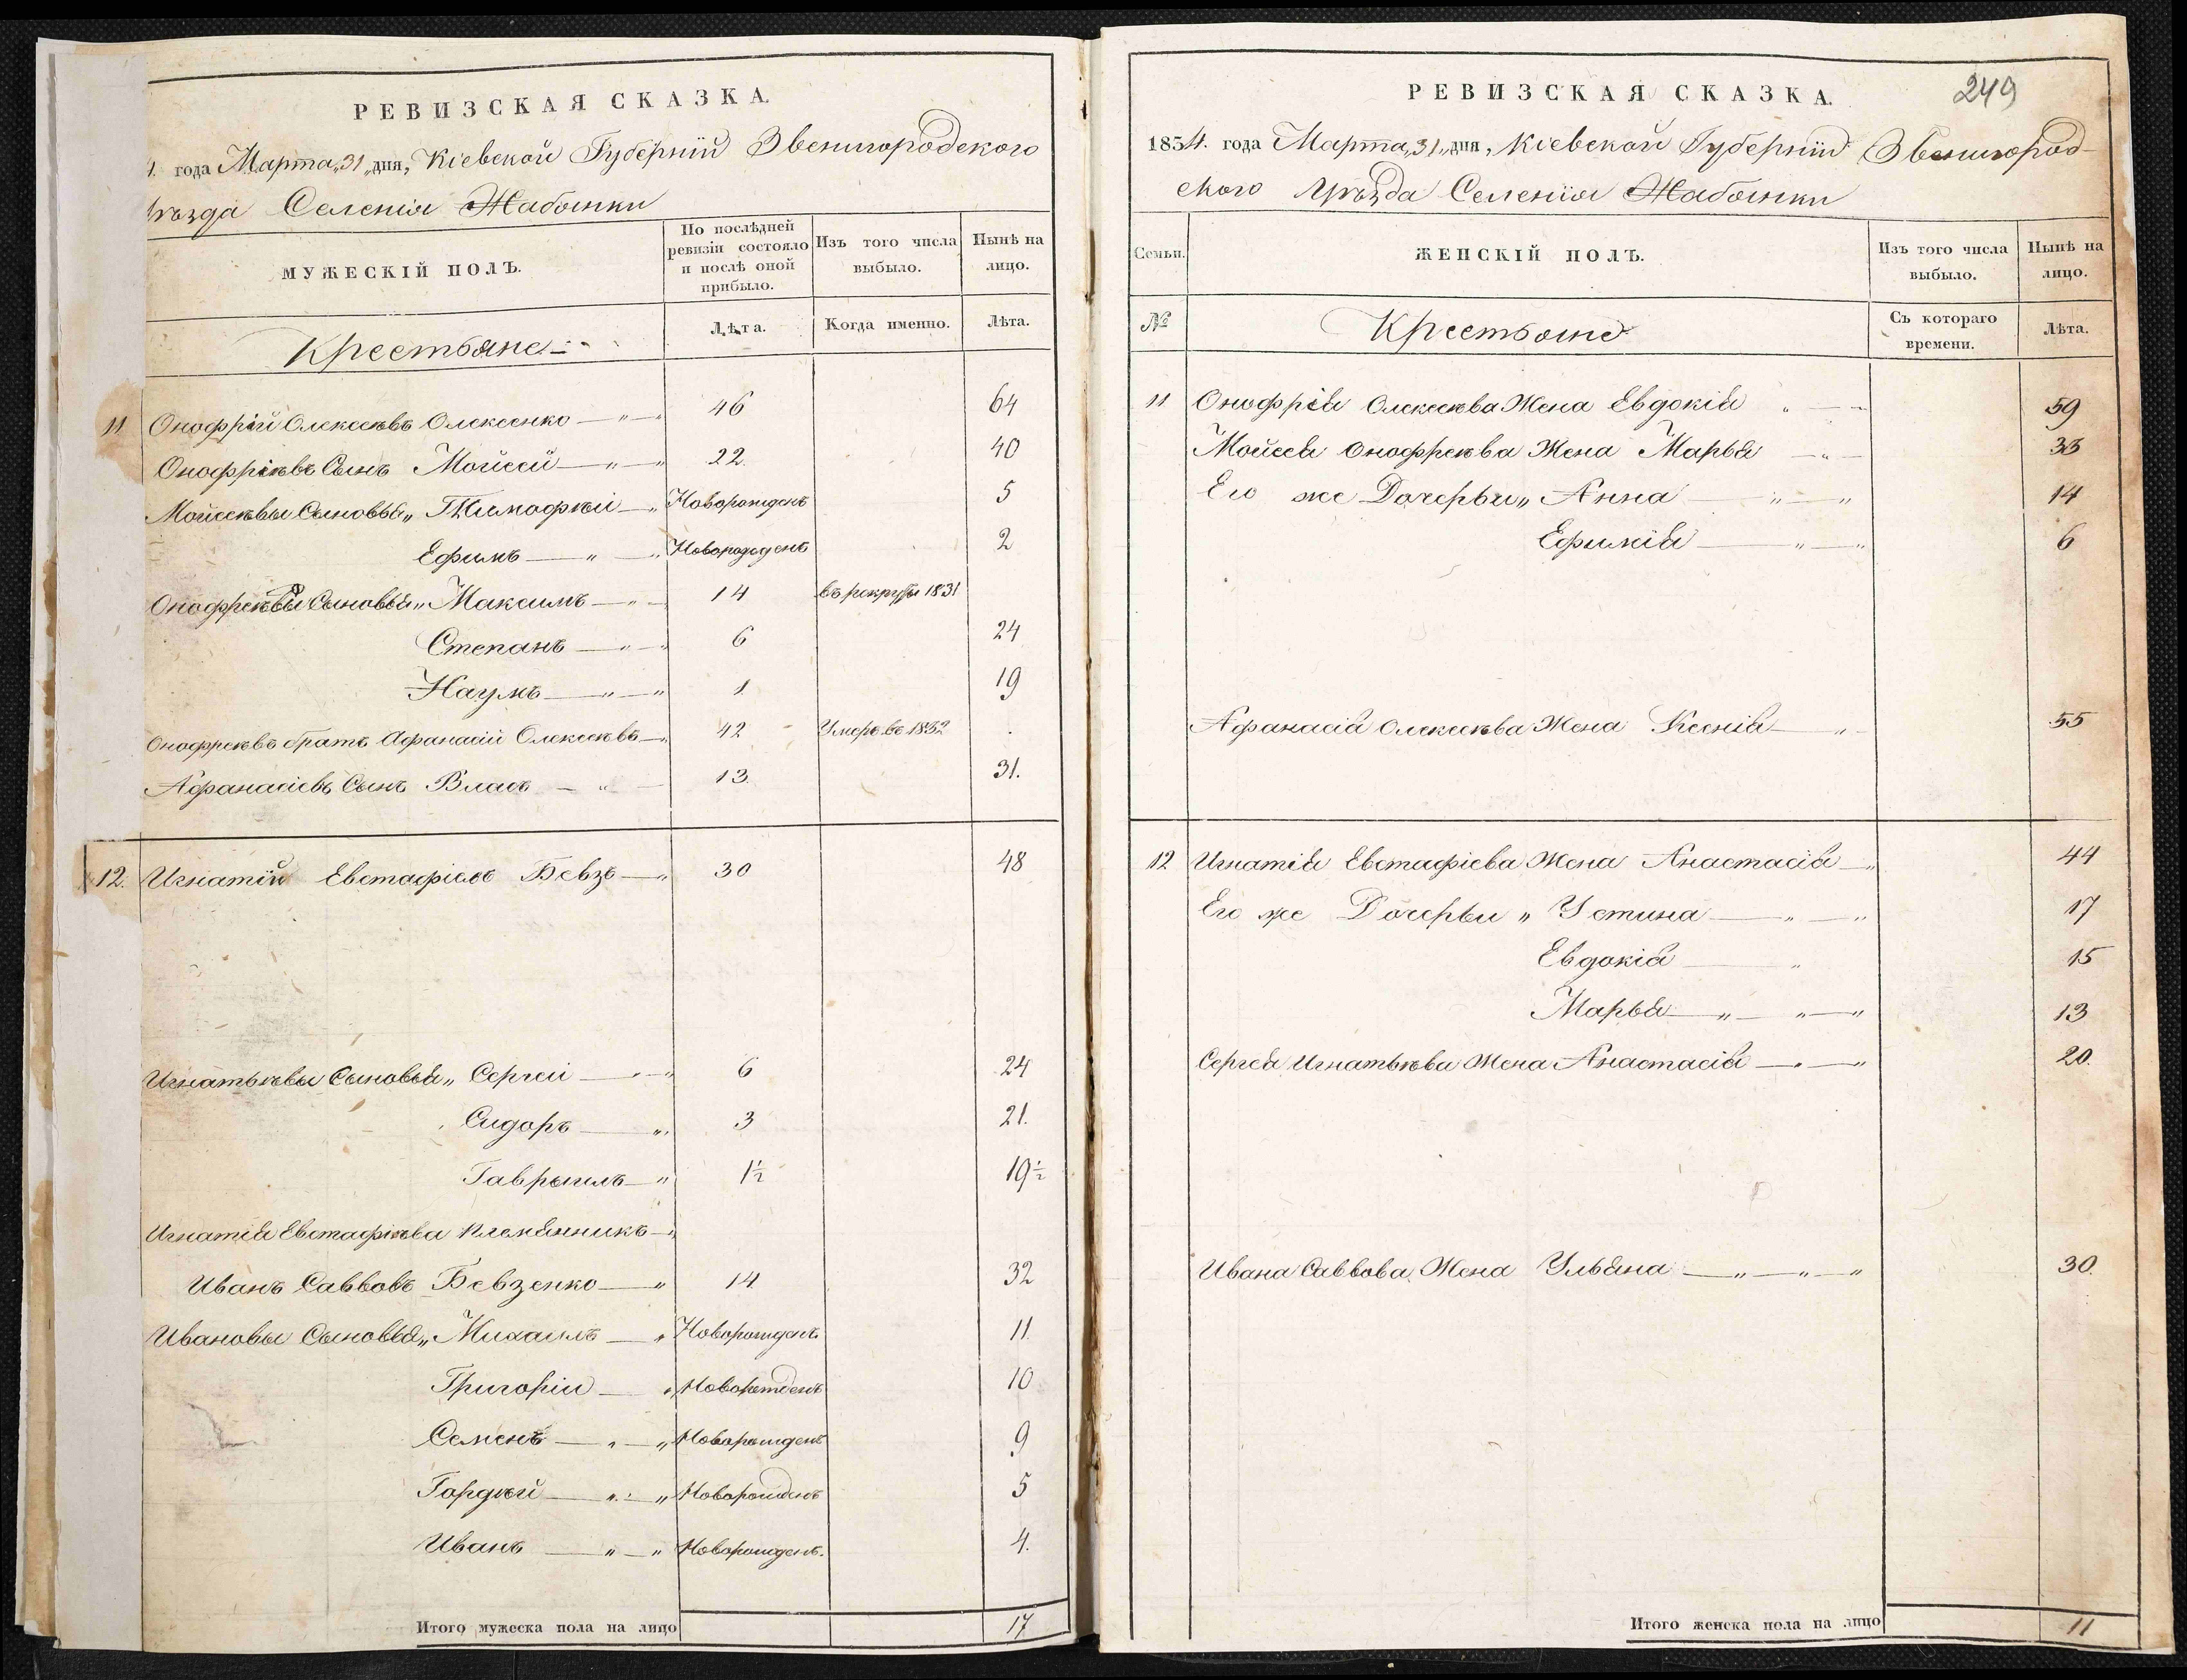 РЕВИЗСКАЯ СКАЗКА.
4. года Марта „31„ дня, Кіевской Губерніи Звенигородского
Уѣзда Селенія Жабянки
МУЖЕСКІЙ ПОЛЪ.
По послѣдней ревизіи состояло и послѣ оной прибыло.
Изъ того числа выбыло.
Нынѣ на лицо.
Крестьяне
Лѣта.
Когда именно.
Лѣта.
11 Онофрій Олексѣевъ Олексенко — „ — „ 46 64
Онофріевъ Сынъ Мойсей — „ — „ 22. 40
Мойсѣевы Сыновья „ Тимофѣй — „ Новорожденъ 5
Ефимъ — „ — „ Новорожденъ 2
Онофрѣевы Сыновья „ Максимъ — „ — 14 въ рекруты 1831
Степанъ — „ — „ 6 24
Наумъ — „ — „ 1 19
Онофрѣевъ братъ Афанасій Олексѣевъ — „ 42 Умеръ въ 1832
Афанасіевъ Сынъ Власъ — „ — 13. 31.
12. Игнатій Евстафіевъ Бевзъ — „ 30 48
Игнатьѣвы Сыновья „ Сергей — „ — „ 6 24
Сидоръ — „. 3 21.
Гаврыилъ — „ 1½ 19½
Игнатія Евстафіѣва племянникъ — „
Иванъ Саввовъ Бевзенко — „ 14 32
Ивановы Сыновья „ Михаилъ — „ Новорожденъ 11
Григорій — „ Новорожденъ 10
Семенъ — „ — „ Новорожденъ 9
Гордѣй — „ — „ Новорожденъ 5
Иванъ — „ — „ Новорожденъ. 4.
Итого мужеска пола на лицо 17
РЕВИЗСКАЯ СКАЗКА.
249
1854. года Марта „31„ дня, Кіевской Губерніи Звенигород-
ского Уѣзда Селенія Жабянки
Семьи.
ЖЕНСКІЙ ПОЛЪ.
Изъ того числа выбыло.
Нынѣ на лицо.
№
Крестьяне
Съ котораго времени.
Лѣта.
11 Онофрія Олексѣева Жена Евдокія „ — „ 59
Мойсея Онофреѣва Жена Марья — „ — 33
Его же Дочерьи „ Анна — „ — „ 14
Ефимія — „ — „ 6
Афанасія Олексѣева Жена Ксенія — „ — 55
12 Игнатія Евстафіева Жена Анастасія — „ 44
Его же Дочерьи „ Устина — „ — „ 17
Евдокія — „ 15
Марья — „ — „ — „ 13
Сергея Игнатьѣва Жена Анастасія — „ — „ 20.
Ивана Саввова Жена Ульяна — „ — „ — „ 30.
Итого женска пола на лицо 11